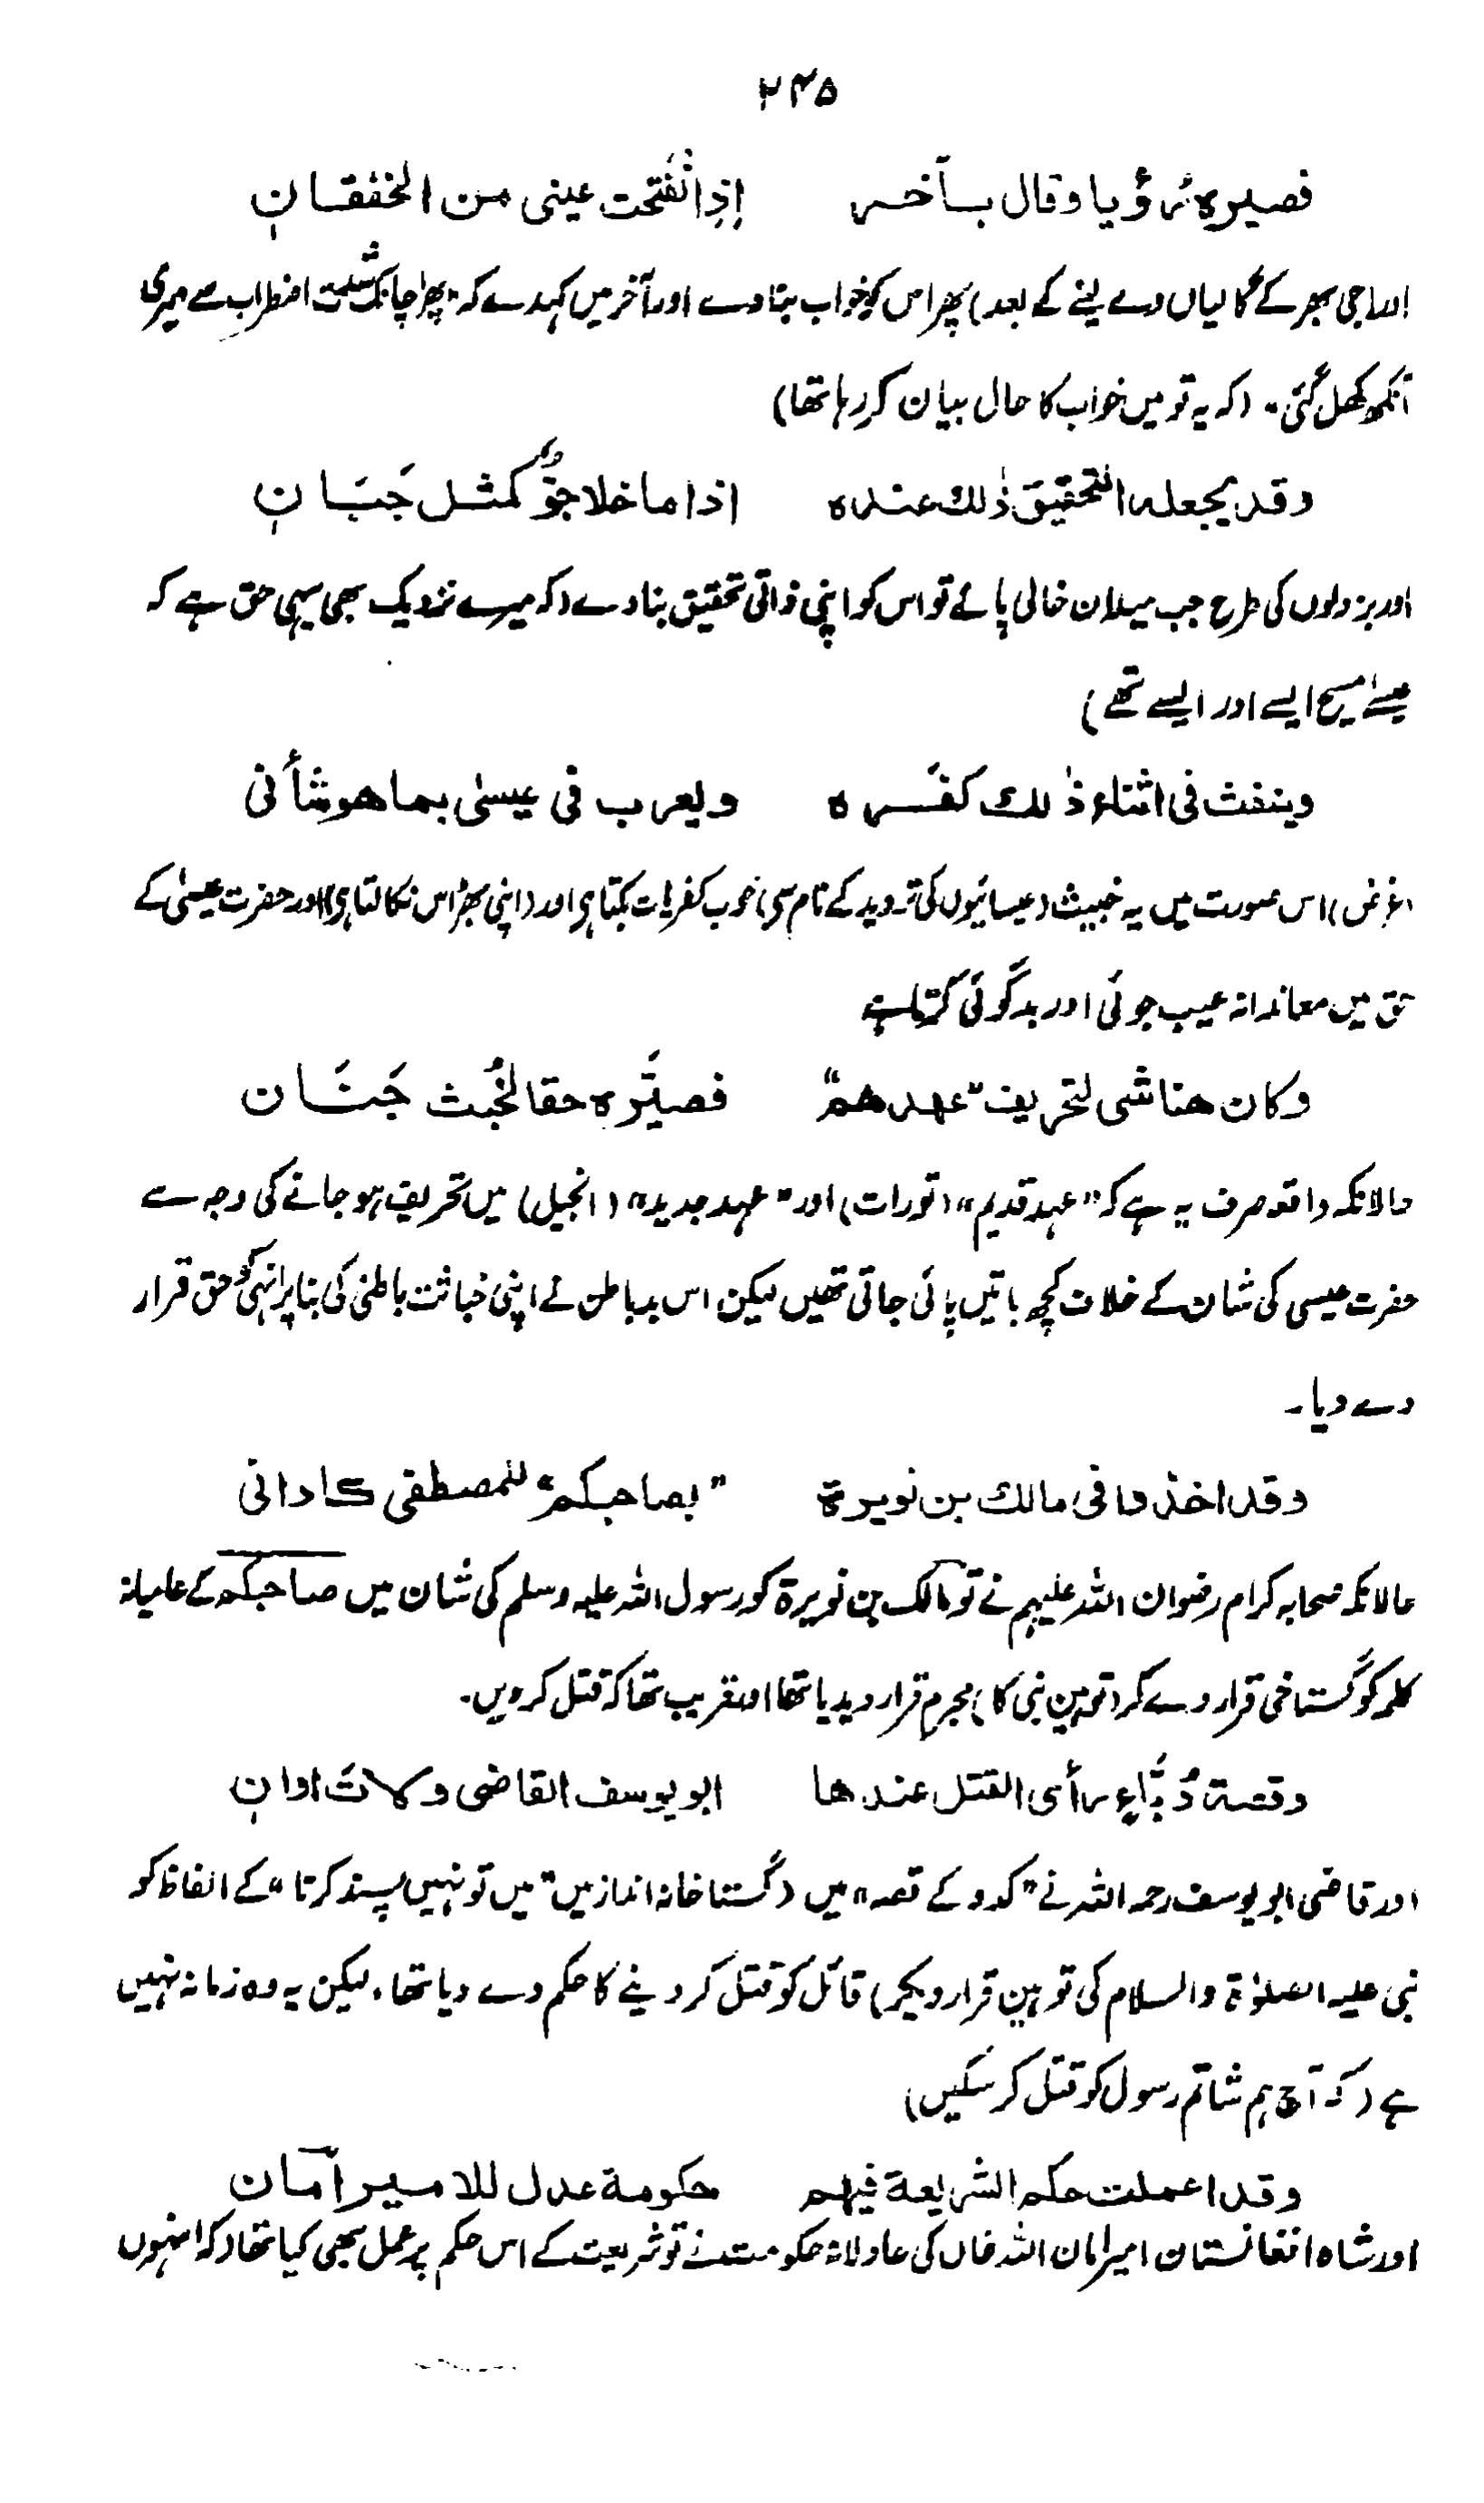 ۲۴۵
فصیره رؤیا وقال بآخر اِذِ انْفَتَحت عینی من الخفقانِ
اور (جی بھر کے گالیاں دے لینے کے بعد) پھر اس کو خواب بنادے اور آخر میں کہدے کہ: پھر اچانک شدت اضطراب سے میری
آنکھ کھل گئی۔ (کہ یہ تو میں خواب کا حال بیان کر رہا تھا)
وقد یجعل التحقیق ذٰلك عنده اذا ما خلا جوٌّ کمثل جَبَانِ
اور بزدلوں کی طرح جب میدان خالی پائے تو اس کو اپنی ذاتی تحقیق بنا دے (کہ میرے نزدیک بھی یہی حق ہے کہ
عیسٰی مسیح ایسے اور ایسے تھے)
وینفث فی اثناء ذٰلك کفره ویعرب فی عیسیٰ بما هو شأنی
(غرض) اس صورت میں یہ خبیث (عیسائیوں کی تردید کے نام سی) خوب کفریات بکتا ہی اور (اپنی بھڑاس نکالتا ہی) اور حضرت عیسیٰ کے
حق میں معاندانہ عیب جوئی اور بدگوئی کرتا ہے
وکان هنا شی لتحریف "عهدهم" فصیَّره حقا لخُبث جَنَان
حالانکہ واقعہ صرف یہ ہے کہ "عہد قدیم" (تورات) اور "عہد جدید" (انجیل) میں تحریف ہو جانے کی وجہ سے
حضرت عیسی کی شان کے خلاف کچھ باتیں پائی جاتی تھیں لیکن اس بد باطن نے اپنی خباثت باطنی کی بنا پر انہی کو حق قرار
دے دیا۔
وقد اخذوا فی مالك بن نویرة "بصاحبکم" للمصطفی کادانی
حالانکہ صحابہ کرام رضوان اللہ علیہم نے تو مالک بن نویرة کو رسول اللہ علیہ وسلم کی شان میں صاحبکم کے عامیانہ
کلمہ کو گستاخی قرار دے کر (توہین نبی کا) مجرم قرار دیدیا تھا اور قریب تھا کہ قتل کر دیں۔
وقصة دُبّاءٍ رأی القتل عندها ابو یوسف القاضی ولات اوانِ
اور قاضی ابو یوسف رحمہ اللہ نے "کدو کے قصہ" میں (گستاخانہ انداز میں "میں تو نہیں پسند کرتا" کے الفاظ کو
نبی علیہ الصلوٰة والسلام کی توہین قرار دیکر) قائل کو قتل کر دینے کا حکم دے دیا تھا، لیکن یہ وہ زمانہ نہیں
ہے (کہ آج ہم شاتم رسول کو قتل کر سکیں)
وقد اعملت حکم الشریعة فیهم حکومة عدل للامیر آمان
اور شاہ افغانستان امیر امان اللہ خاں کی عادلانہ حکومت نے تو شریعت کے اس حکم پر عمل بھی کیا تھا (کہ انہوں